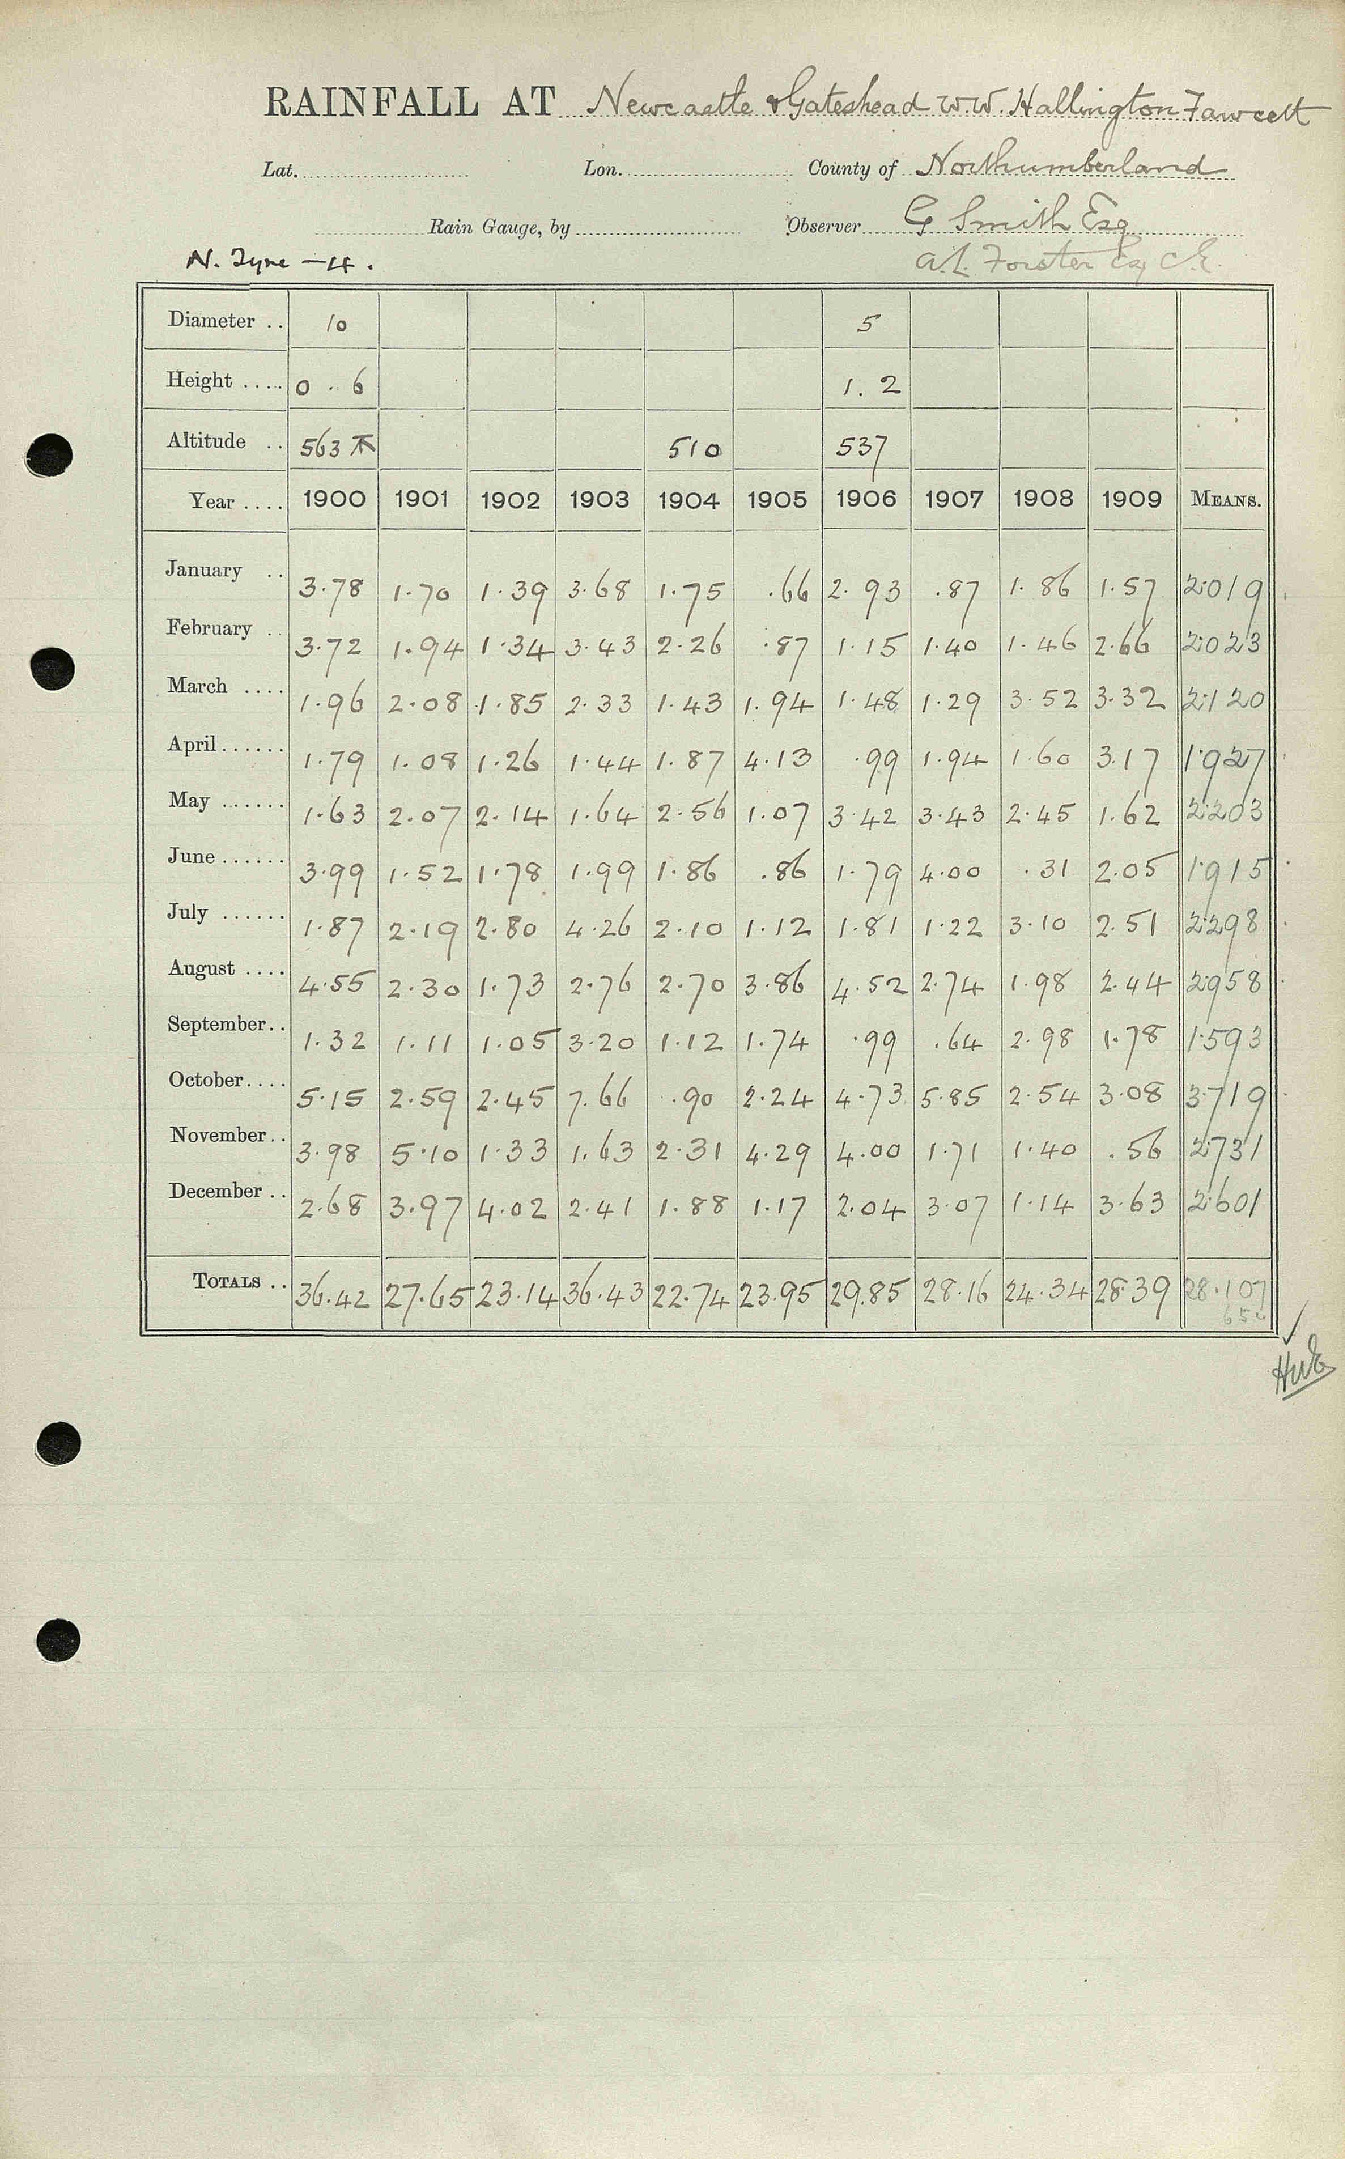 RAINFALL AT Newcastle & Gateshead W.W. Hallington Fawcett
Lat. Lon. County of Northumberland
Rain Gauge, by Observer G Smith Esq
N. Tyne – 4. A.L. Forster Esq C.E.
Diameter .. 10 5
Height ..... 0 . 6 1. 2
Altitude .. 563 510 537
Year .... 1900 1901 1902 1903 1904 1905 1906 1907 1908 1909 MEANS.
January .. 3.78 1.70 1.39 3.68 1.75 .66 2.93 .87 1.86 1.57 2.019
February .. 3.72 1.94 1.34 3.43 2.26 .87 1.15 1.40 1.46 2.66 2.023
March .... 1.96 2.08 1.85 2.33 1.43 1.94 1.48 1.29 3.52 3.32 2.120
April...... 1.79 1.08 1.26 1.44 1.87 4.13 .99 1.94 1.60 3.17 1.927
May ...... 1.63 2.07 2.14 1.64 2.56 1.07 3.42 3.43 2.45 1.62 2.203
June...... 3.99 1.52 1.78 1.99 1.86 .86 1.79 4.00 .31 2.05 1.915
July ...... 1.87 2.19 2.80 4.26 2.10 1.12 1.81 1.22 3.10 2.51 2.298
August .... 4.55 2.30 1.73 2.76 2.70 3.86 4.52 2.74 1.98 2.44 2.958
September.. 1.32 1.11 1.05 3.20 1.12 1.74 .99 .64 2.98 1.78 1.593
October.... 5.15 2.59 2.45 7.66 .90 2.24 4.73 5.85 2.54 3.08 3.719
November.. 3.98 5.10 1.33 1.63 2.31 4.29 4.00 1.71 1.40 .56 2.731
December .. 2.68 3.97 4.02 2.41 1.88 1.17 2.04 3.07 1.14 3.63 2.601
TOTALS .. 36.42 27.65 23.14 36.43 22.74 23.95 29.85 28.16 24.34 28.39 28.107